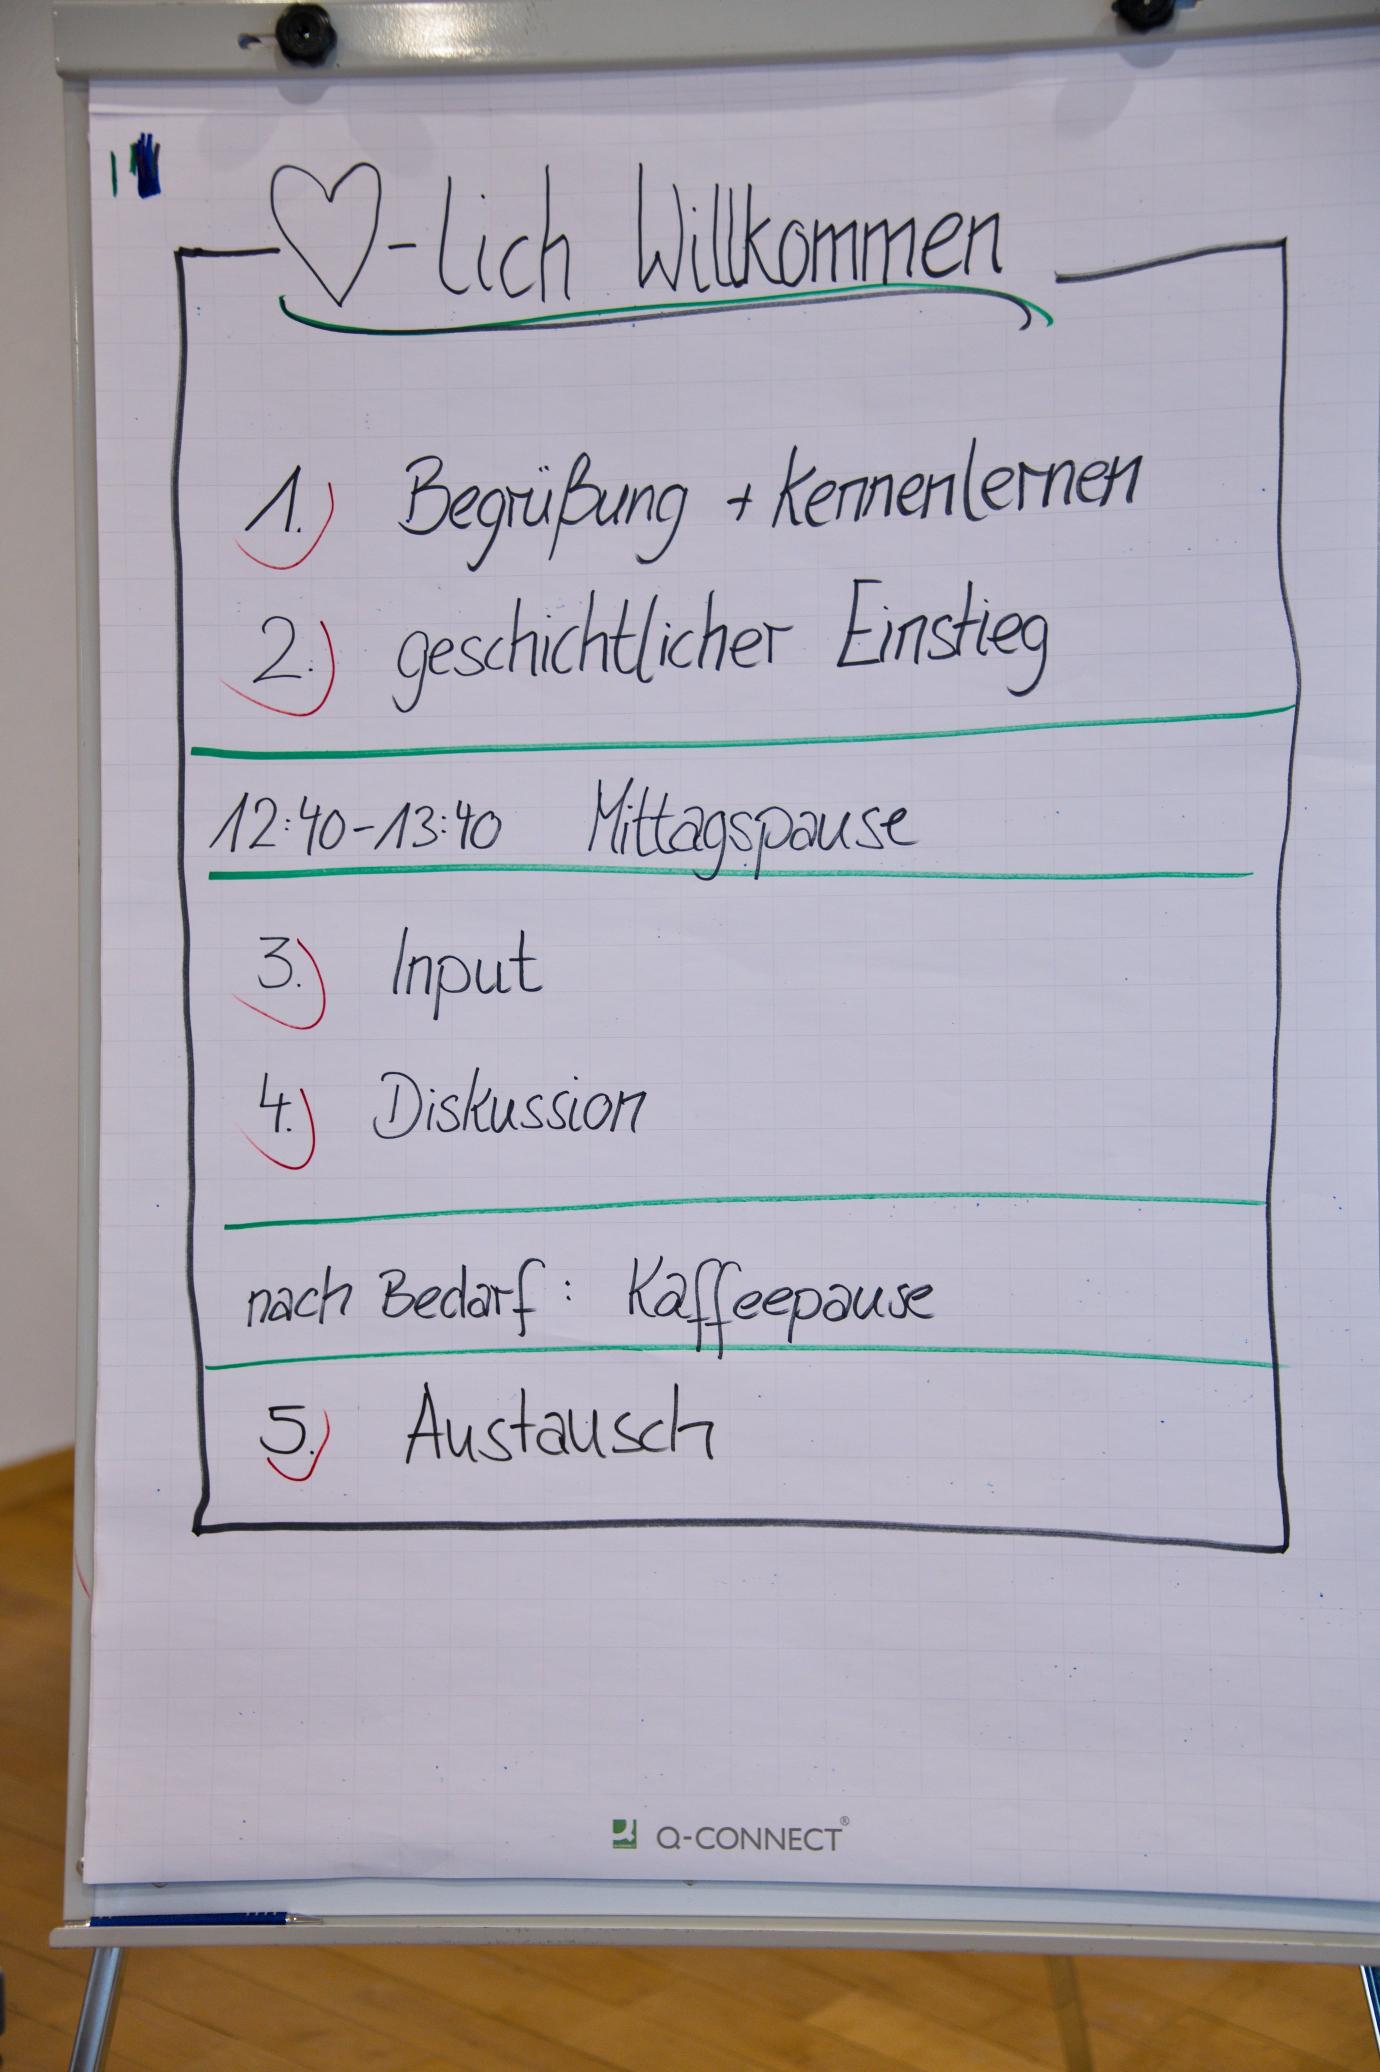 ♡-lich Willkommen
1.) Begrüßung + Kennenlernen
2.) geschichtlicher Einstieg
12:40-13:40 Mittagspause
3.) Input
4.) Diskussion
nach Bedarf: Kaffeepause
5.) Austausch
Q-CONNECT®